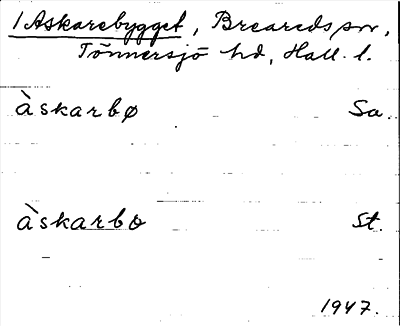 /Askarebygget, Breareds sn,
Tönnersjö hd, Hall. l.
àskarbø Sa.
àskarbo St.
1947.